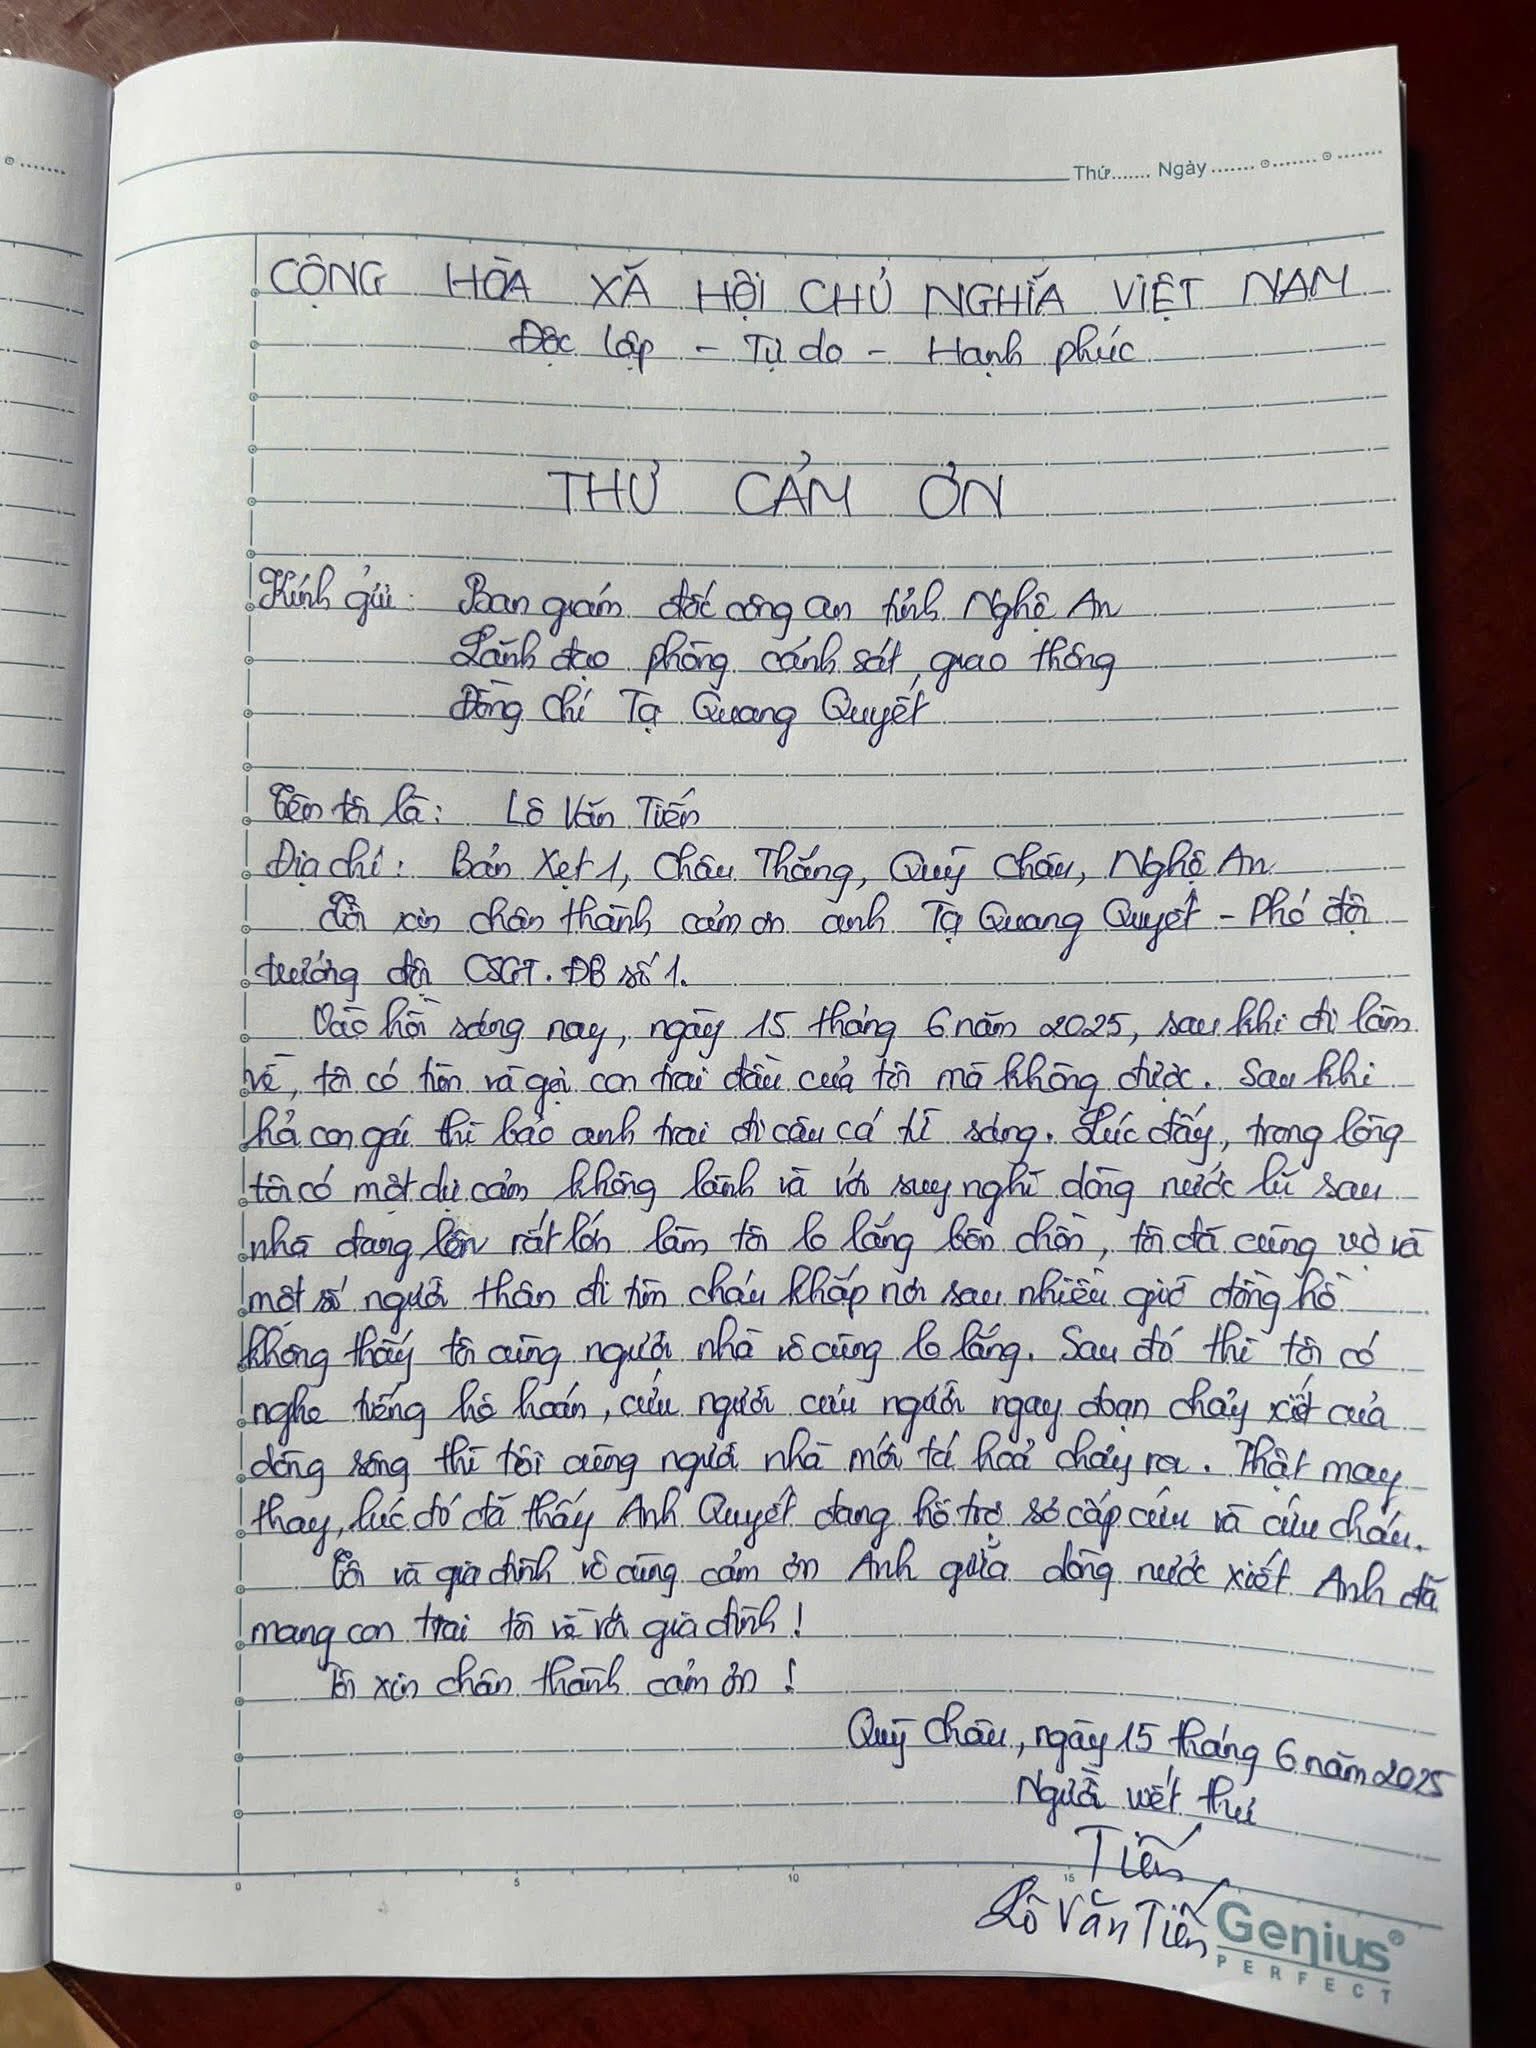 Thứ....... Ngày ....... ....... .......
CỘNG HÒA XÃ HỘI CHỦ NGHĨA VIỆT NAM
Độc lập - Tự do - Hạnh phúc
THƯ CẢM ƠN
Kính gửi: Ban giám đốc công an tỉnh Nghệ An
Lãnh đạo phòng cảnh sát giao thông
Đồng chí Tạ Quang Quyết
Tên tôi là: Lô Văn Tiến
Địa chỉ: Bản Xẹt 1, Châu Thắng, Quỳ Châu, Nghệ An
Tôi xin chân thành cảm ơn anh Tạ Quang Quyết - Phó đội
trưởng đội CSGT.ĐB số 1.
Vào hồi sáng nay, ngày 15 tháng 6 năm 2025, sau khi đi làm
về, tôi có tìm và gọi con trai đầu của tôi mà không được. Sau khi
hỏi con gái thì bảo anh trai đi câu cá từ sáng. Lúc đấy, trong lòng
tôi có một dự cảm không lành và với suy nghĩ dòng nước lũ sau
nhà đang lên rất lớn làm tôi lo lắng bồn chồn, tôi đã cùng vợ và
một số người thân đi tìm cháu khắp nơi sau nhiều giờ đồng hồ
không thấy tôi cùng người nhà vô cùng lo lắng. Sau đó thì tôi có
nghe tiếng hô hoán, cứu người cứu người ngay đoạn chảy xiết của
dòng sông thì tôi cùng người nhà mới tá hoả chạy ra. Thật may
thay, lúc đó đã thấy Anh Quyết đang hỗ trợ sơ cấp cứu và cứu cháu.
Tôi và gia đình vô cùng cảm ơn Anh giữa dòng nước xiết Anh đã
mang con trai tôi về với gia đình!
Tôi xin chân thành cảm ơn!
Quỳ Châu, ngày 15 tháng 6 năm 2025
Người viết thư
Tiến
Lô Văn Tiến
0 5 10 15
Genius®
PERFECT